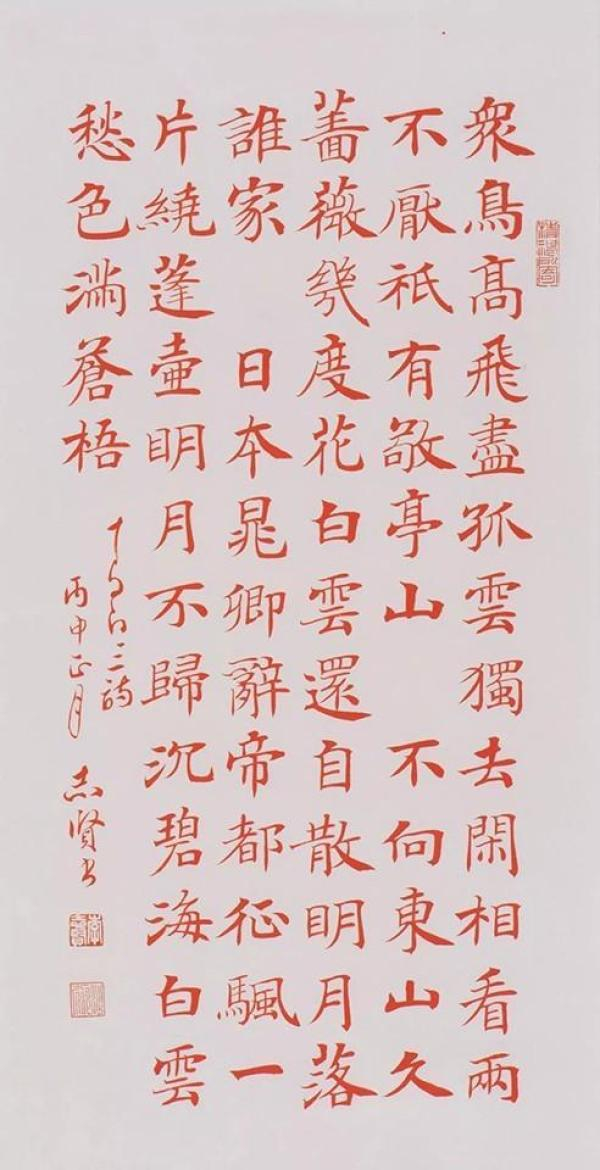 衆鳥高飛盡孤雲獨去閑相看兩
不厭祇有敬亭山 不向東山久
薔薇幾度花白雲還自散明月落
誰家 日本晁卿辭帝都征颿一
片繞蓬壺明月不歸沉碧海白雲
愁色滿蒼梧
白三詩
丙申正月 志賢書